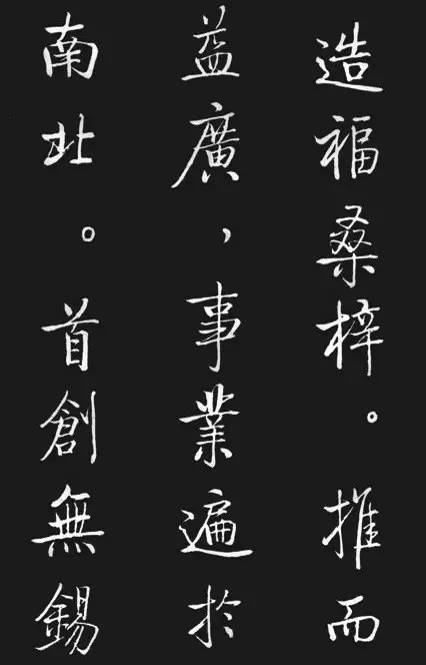 造福桑梓。推而
益廣，事業遍於
南北。首創無錫